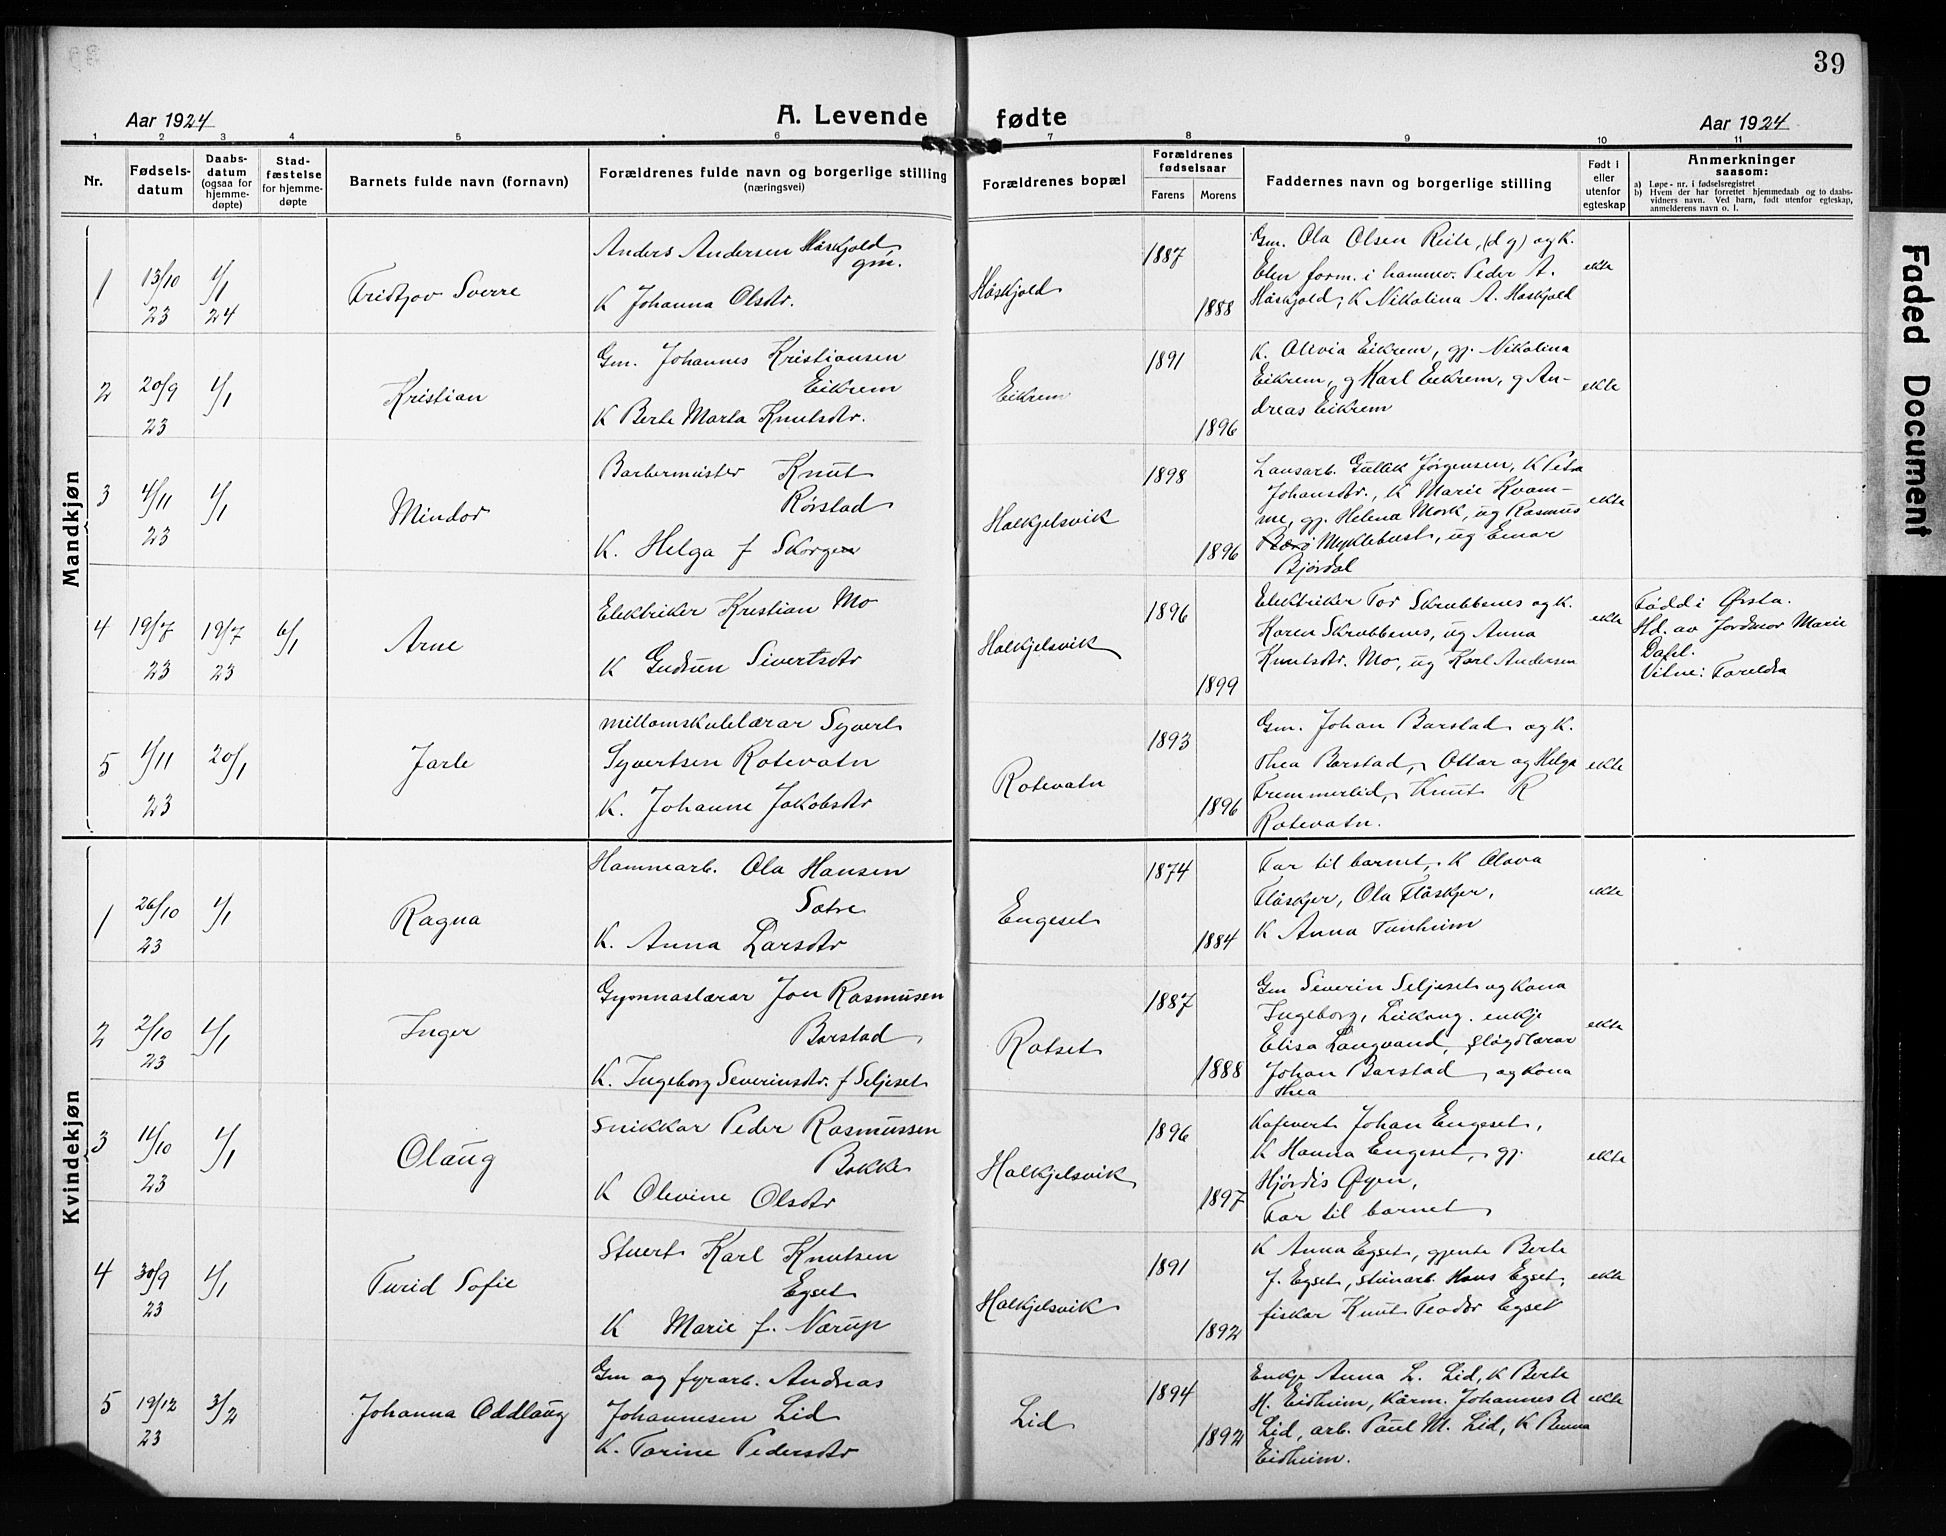 39
Aar 1924
A. Levende fødte
Aar 1924
1 2 3 4 5 6 7 8 9 10 11
Nr.
Fødsels-
datum
Daabs-
datum
(ogsaa for
hjemme-
døpte)
Stad-
fæstelse
for hjemme-
døpte
Barnets fulde navn (fornavn)
Forældrenes fulde navn og borgerlige stilling
(næringsvei)
Forældrenes bopæl
Forældrenes
fødselsaar
Farens Morens
Faddernes navn og borgerlige stilling
Født i
eller
utenfor
egteskap
Anmerkninger
saasom:
a) Løpe-nr. i fødselsregistret
b) Hvem der har forrettet hjemmedaab og to daabs-
vidners navn. Ved barn, født utenfor egteskap,
anmelderens navn o. l.
Mandkjøn
1
13/10
23
1/1
24
Fridtjov Sverre
Anders Andersen Håskjold
gm.
K Johanna Olsdtr.
Håskjold
1887
1888
Gm. Ola Olsen Reite, (d g) og K.
Elen form. i hammer. Peder A.
Håskjold, K Nikolina A. Haskjold
ekte
2
20/9
23
1/1
Kristian
Gm. Johannes Kristiansen
Eikrem
K Berte Marta Knutsdtr.
Eikrem
1891
1896
K. Olivia Eikrem, gj. Nikolina
Eikrem, g Karl Eikrem, g An-
dreas Eikrem
ekte
3
4/11
23
1/1
Mindor
Barbermester Knut
Rørstad
K. Helga f Skorgen
Halkjelsvik
1898
1896
Lausarb. Gullik Jørgensen, K Petra
Johansdtr., K Marie Kvam-
me, gj. Helena Mork, ug Rasmus
Myklebust, ug Einar
Bjørdal
ekte
4
19/7
23
19/7
23
6/1
Arne
Elektriker Kristian Mo
K Gudrun Sivertsdtr
Halkjelsvik
1896
1899
Elektriker Tor Skrubbenes og K.
Karen Skrubbenes, ug Anna
Knutsdtr. Mo, ug Karl Andersen
ekte
Fødd i Ørsta.
Hd. av Jordmor Marie
Dahl.
Vitne: Foreldra
5
1/11
23
20/1
Jarle
Millomskulelærar Syvert
Syvertsen Rotevatn
K. Johanne Jakobsdtr
Rotevatn
1893
1896
Gm. Johan Barstad og K.
Thea Barstad, Ottar og Helga
Fremmerlid, Knut R
Rotevatn.
ekte
Kvindekjøn
1
26/10
23
1/1
Ragna
Hammearb. Ola Hansen
Sætre
K. Anna Larsdtr
Engeset
1874
1884
Far til barnet, K Olava
Flåskjer, Ola Flåskjer,
K Anna Tunheim
ekte
2
2/10
23
1/1
Inger
Gymnaslærar Jon Rasmusen
Barstad
K. Ingeborg Severinsdtr. f Seljeset
Rotset
1887
1888
Gm Severin Seljeset og kona
Ingeborg, Leikong. enkje
Elisa Langvand, sløgdlærar
Johan Barstad og kona
Thea
ekte
3
11/10
23
1/1
Olaug
Snikkar Peder Rasmussen
Bakke
K Olevine Olsdtr
Halkjelsvik
1896
1897
Kafevert Johan Engeset,
K Hanna Engeset, gj.
Hjørdis Øyen,
Far til barnet
ekte
4
30/9
23
1/1
Turid Sofie
Stuert Karl Knutsen
Egset
K Marie f. Nærup
Halkjelsvik
1891
1892
K Anna Egset, gjente Berte
J. Egset, steinarb. Hans Egset,
fiskar Knut Teodor Egset
ekte
5
19/12
23
3/2
Johanna Oddlaug
Gm og fyrarb. Andreas
Johannesen Lid
K. Tarine Pedersdtr
Lid
1894
1892
Enkje Anna L. Lid, K Berte
M. Eidheim, kårm. Johannes A
Lid, arb. Paul M. Lid, K Benna
Eidheim.
ekte
Faded Document